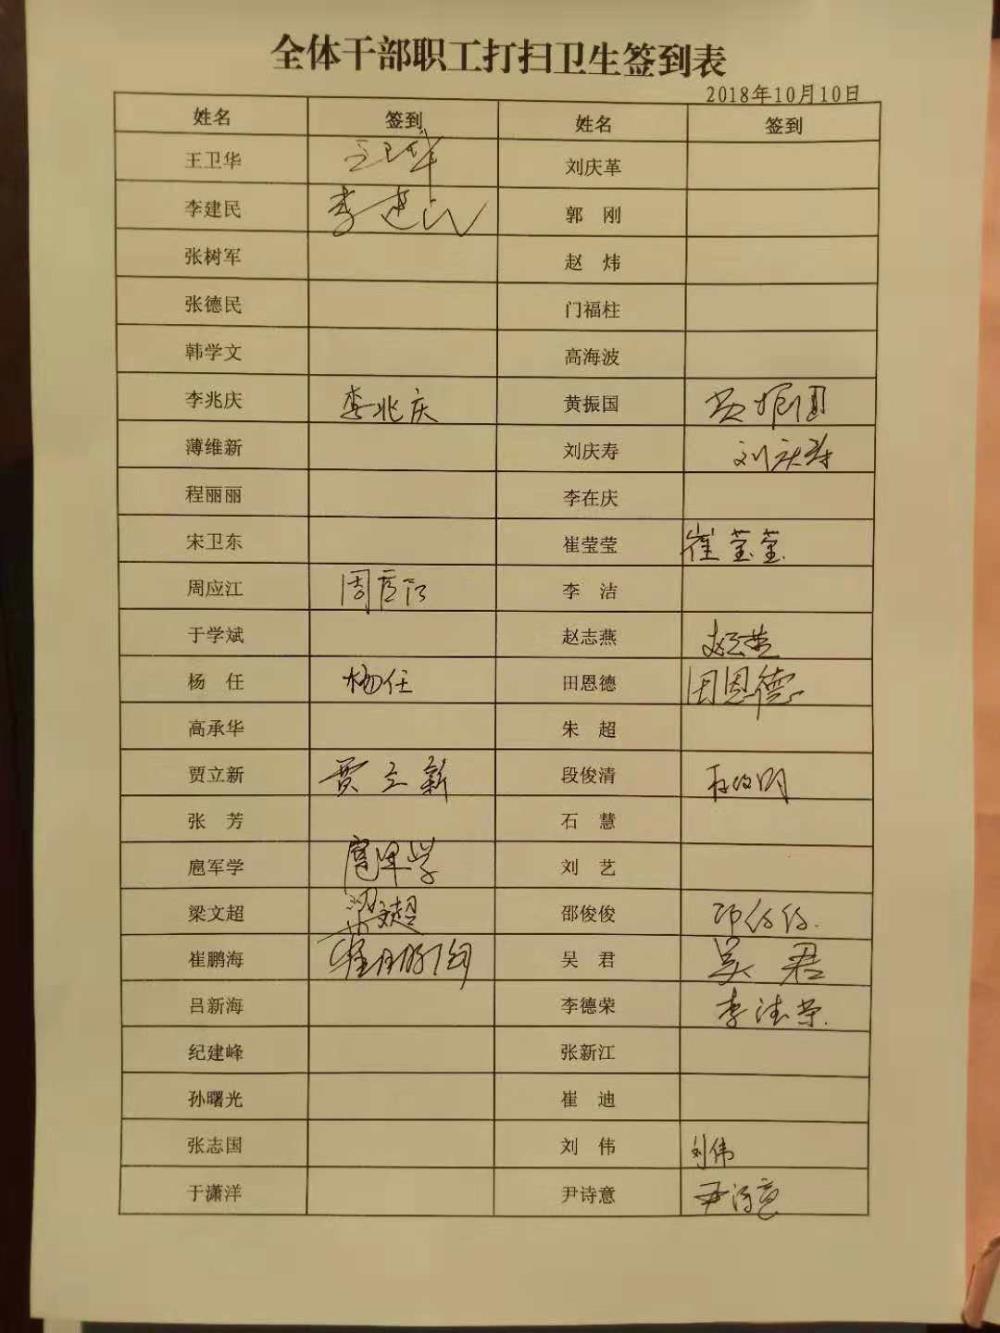 全体干部职工打扫卫生签到表
2018年10月10日
姓名 签到 姓名 签到
王卫华 王卫华 刘庆革
李建民 李建民 郭 刚
张树军 赵 炜
张德民 门福柱
韩学文 高海波
李兆庆 李兆庆 黄振国 黄振国
薄维新 刘庆寿 刘庆寿
程丽丽 李在庆
宋卫东 崔莹莹 崔莹莹
周应江 周应江 李 洁
于学斌 赵志燕
杨 任 杨任 田恩德 田恩德
高承华 朱 超
贾立新 贾立新 段俊清
张 芳 石 慧
扈军学 扈军学 刘 艺
梁文超 梁文超 邵俊俊 邵俊俊
崔鹏海 吴 君 吴君
吕新海 李德荣 李德荣
纪建峰 张新江
孙曙光 崔 迪
张志国 刘 伟 刘伟
于潇洋 尹诗意 尹诗意